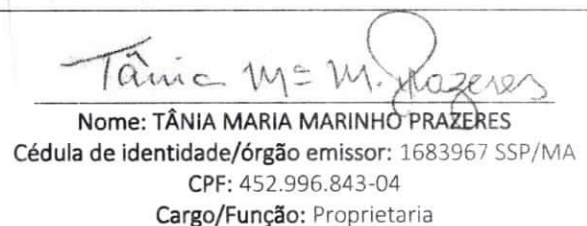 Tânia Mª M. Prazeres
Nome: TÂNIA MARIA MARINHO PRAZERES
Cédula de identidade/órgão emissor: 1683967 SSP/MA
CPF: 452.996.843-04
Cargo/Função: Proprietaria